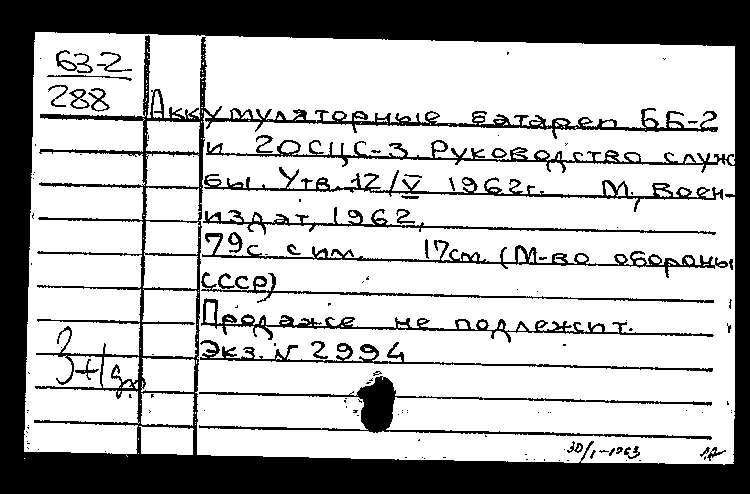 63-2
288
Аккумуляторные батареи ББ-2
и 20СЦС-3. Руководство служ
бы. Утв. 12/V 1962г. М., Воен-
издат, 1962,
79с. с ил. 17см. (М-во обороны
СССР)
Продаже не подлежит.
Экз. № 2994
30/I-1963